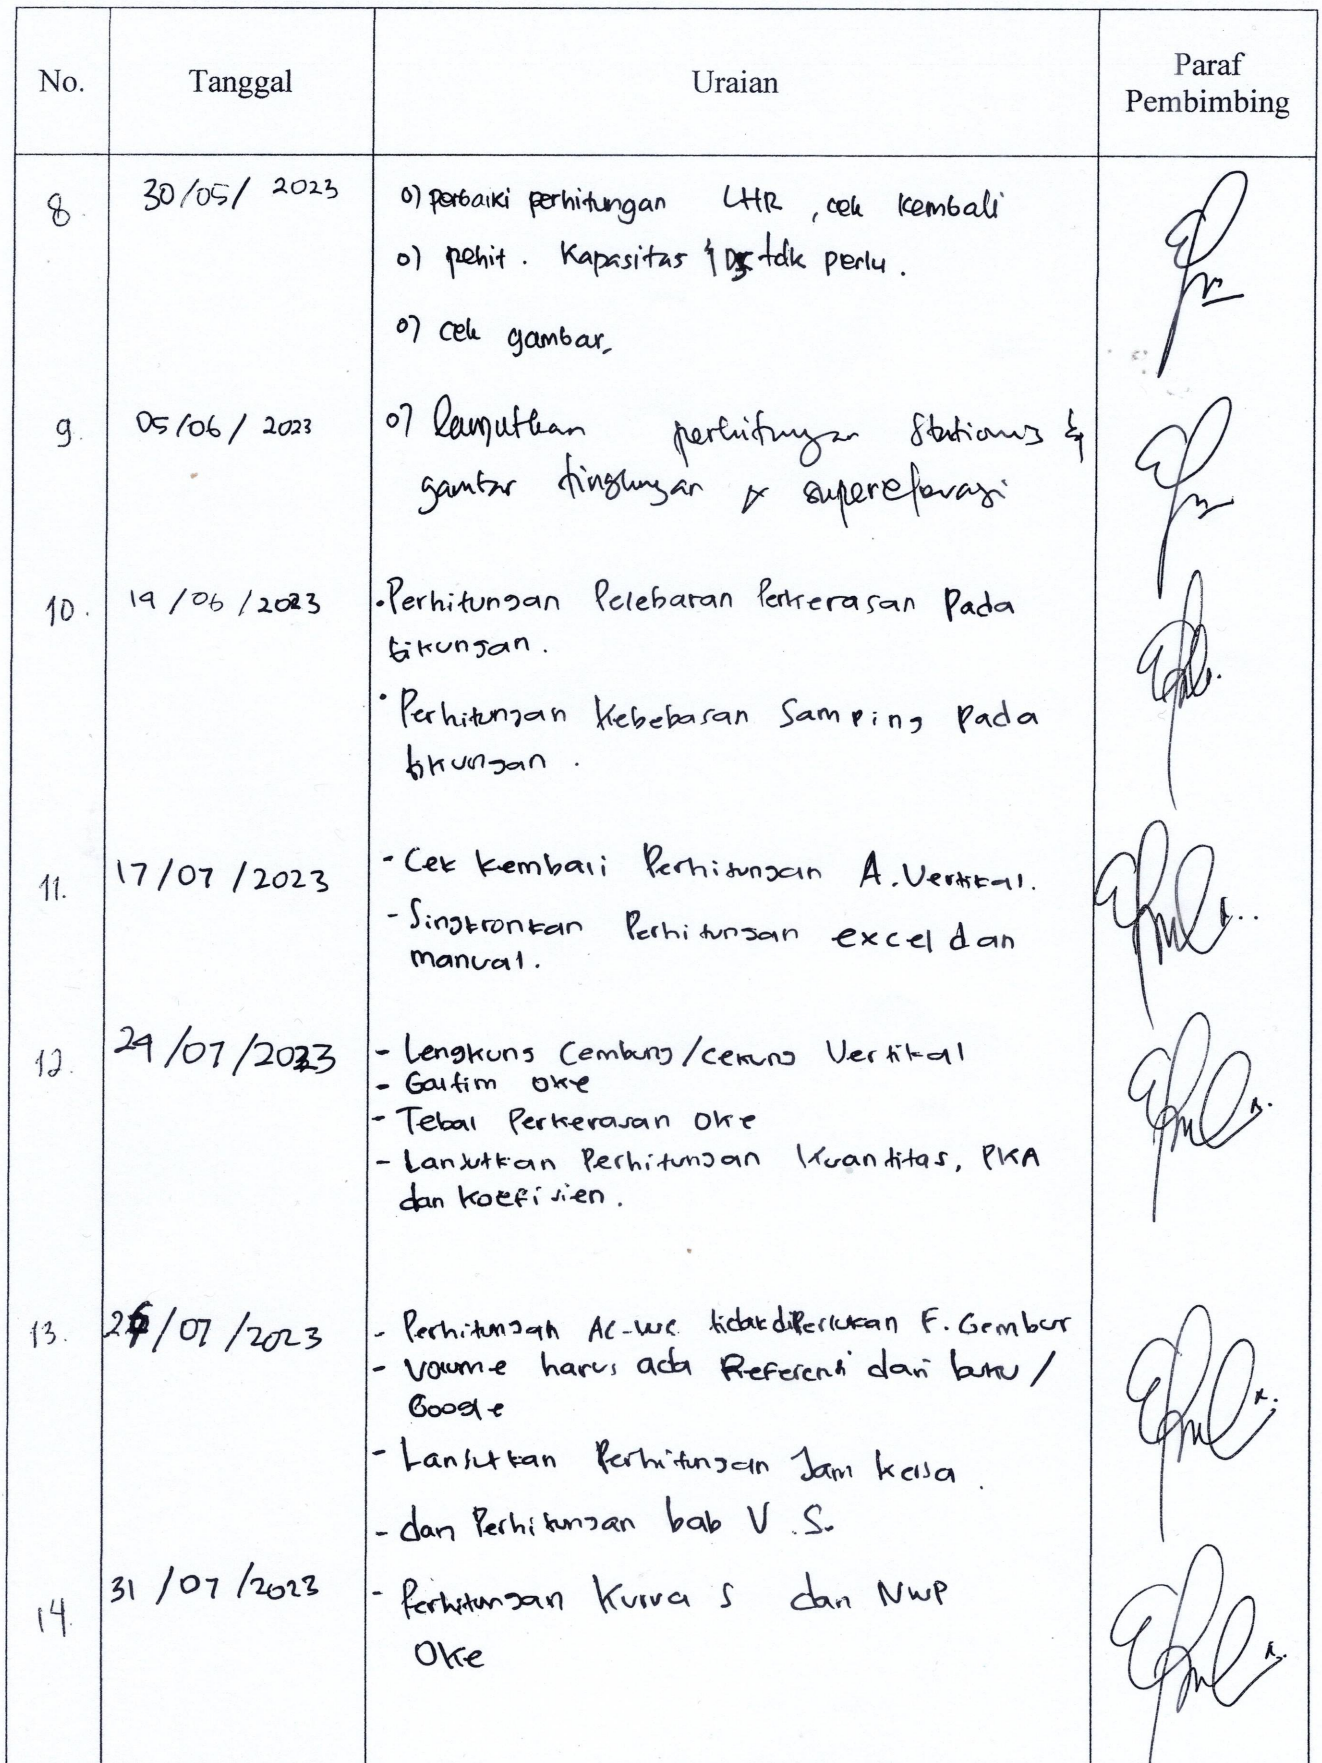 No. Tanggal Uraian Paraf Pembimbing
8. 30/05/ 2023 o) perbaiki perhitungan LHR , cek kembali
o) pehit. Kapasitas & DS tdk perlu.
o) cek gambar.
9. 05/06/ 2023 o) lanjutkan perhitungan Stationing &
gambar tingkungan & superelevasi
10. 19/06/2023 • Perhitungan Pelebaran Perkerasan Pada
tikungan.
• Perhitungan Kebebasan Samping Pada
tikungan.
11. 17/07/2023 - Cek kembali Perhitungan A. Vertikal.
- Singkronkan Perhitungan excel dan
manual.
12. 24/07/2023 - Lengkung Cembung/cekung Vertikal
- Galtim oke
- Tebal Perkerasan Oke
- Lanjutkan Perhitungan Kuantitas, PKA
dan Koefisien.
13. /07/2023 - Perhitungan AC-WC tidak diperlukan F. Gembur
- Volume harus ada Referensi dari buku /
Google
- Lanjutkan Perhitungan Jam kerja.
- dan Perhitungan bab V.S.
14. 31/07/2023 - Perhitungan Kurva S dan NWP
Oke